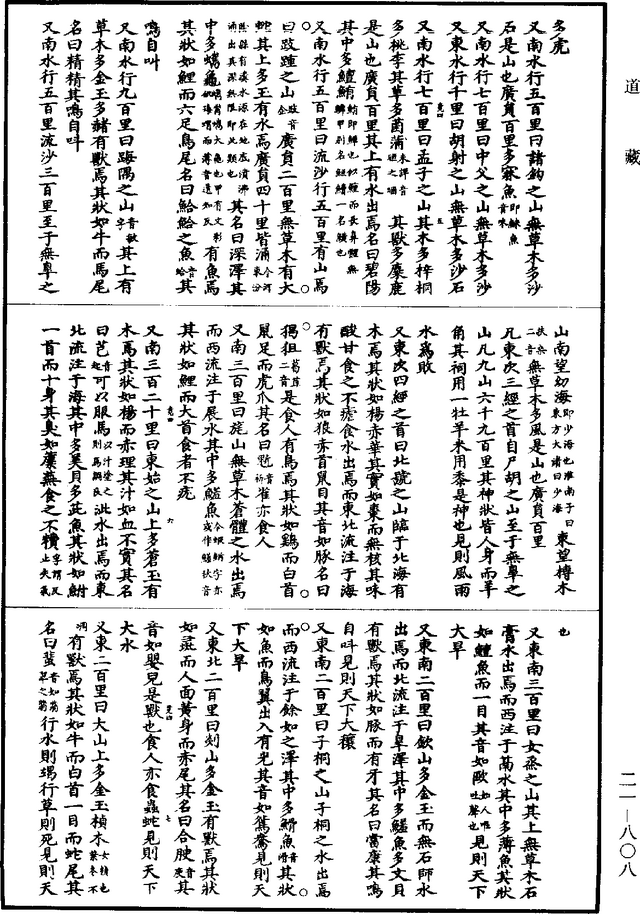 道藏
多虎
又南水行五百里曰諸鈎之山無草木多沙
石是山也廣員百里多寐魚即鮇魚音味
又南水行七百里曰中父之山無草木多沙
又東水行千里曰胡射之山無草木多沙石
又南水行七百里曰孟子之山其木多梓桐
多桃李其草多菌蒲未詳音 其獸多麋鹿
是山也廣員百里其上有水出焉名曰碧陽
其中多鱣鮪鮪即鱏也似鱣而長鼻體無鱗甲別名一名鱑也
又南水行五百里曰流沙行五百里有山焉
曰跂踵之山跂音企廣員二百里無草木有大
蛇其上多玉有水焉廣員四十里皆涌今河東汾
陰縣有瀵水源在地底濆沸涌出其深無限即此類也其名曰深澤其
中多蠵龜蠵觜蠵大龜也甲有文彩似瑇瑁而薄音遺知反有魚焉
其狀如鯉而六足鳥尾名曰鮯鮯之魚音蛤其
鳴自叫
又南水行九百里曰踇隅之山音敏字其上有
草木多金玉多赭有獸焉其狀如牛而馬尾
名曰精精其鳴自叫
又南水行五百里流沙三百里至于無臯之
山南望幼海即少海也淮南子曰東方大渚曰少海東望榑木
扶桑二音無草木多風是山也廣員百里
凡東次三經之首自尸胡之山至于無臯之
山凡九山六千九百里其神狀皆人身而羊
角其祠用一牡羊米用黍是神也見則風雨
水為敗
又東次四經之首曰北號之山臨于北海有
木焉其狀如楊赤華其實如棗而無核其味
酸甘食之不瘧食水出焉而東北流注于海
有獸焉其狀如狼赤首鼠目其音如豚名曰
獦狙葛苴二音是食人有鳥焉其狀如鷄而白首
鼠足而虎爪其名曰鬿音祈雀亦食人
又南三百里曰旄山無草木蒼體之水出焉
而西流注于展水其中多鱃魚今蝦鰌字亦或作鱃秋音
其狀如鯉而大首食者不疣
又南三百二十里曰東始之山上多蒼玉有
木焉其狀如楊而赤理其汁如血不實其名
曰芑音起可以服馬以汁塗之則馬調良泚水出焉而東
北流注于海其中多美貝多茈魚其狀如鮒
一首而十身其臭如蘪蕪食之不𥜥孚謂反止失氣
也
又東南三百里曰女烝之山其上無草木石
膏水出焉而西注于鬲水其中多薄魚其狀
如鱣魚而一目其音如歐如人嘔吐聲也見則天下
大旱
又東南二百里曰欽山多金玉而無石師水
出焉而北流注于臯澤其中多鱃魚多文貝
有獸焉其狀如豚而有牙其名曰當康其鳴
自叫見則天下大穰
又東南二百里曰子桐之山子桐之水出焉
而西流注于餘如之澤其中多䱻魚音滑其狀
如魚而鳥翼出入有光其音如鴛鴦見則天
下大旱
又東北二百里曰剡山多金玉有獸焉其狀
如彘而人面黃身而赤尾其名曰合㺊音庾其
音如嬰兒是獸也食人亦食蟲蛇見則天下
大水
又東二百里曰太山上多金玉楨木女楨也葉冬不
凋有獸焉其狀如牛而白首一目而蛇尾其
名曰蜚音如翡翠之翡行水則竭行草則死見則天
二一—八〇八